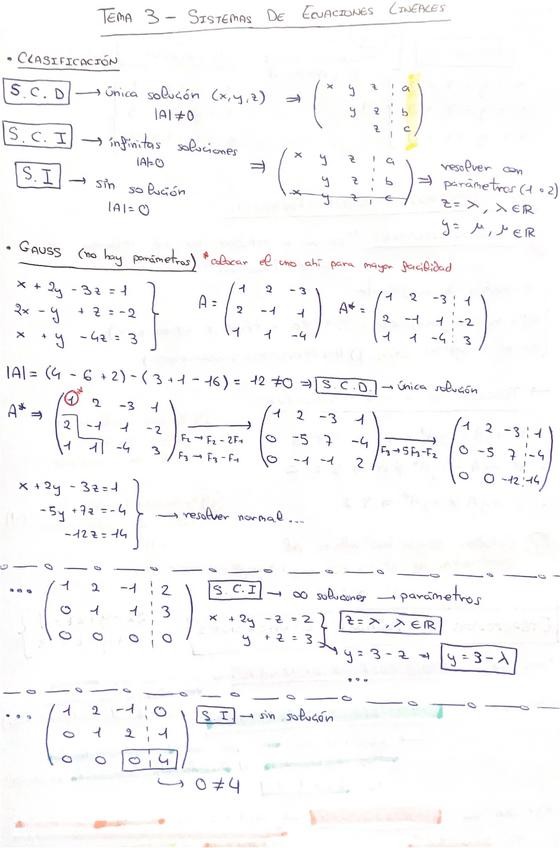 TEMA 3 – SISTEMAS DE ECUACIONES LINEALES
• CLASIFICACIÓN
S.C.D → única solución (x,y,z) ⇒ ( x y z ¦ a
|A|≠0 y z ¦ b
z ¦ c )
S.C.I → infinitas soluciones
|A|=0 ⇒ ( x y z ¦ a
y z ¦ b
x y z ¦ c ) ⇒ resolver con parámetros (1 o 2)
z = λ, λ∈ℝ
y = μ, μ∈ℝ
S.I → sin solución
|A|=0
• GAUSS (no hay parámetros) *colocar el uno ahí para mayor facilidad
x + 2y - 3z = 1
2x - y + z = -2
x + y - 4z = 3
A = ( 1 2 -3
2 -1 1
1 1 -4 )
A* = ( 1 2 -3 ¦ 1
2 -1 1 ¦ -2
1 1 -4 ¦ 3 )
|A| = (4 - 6 + 2) - (3 + 1 - 16) = 12 ≠ 0 ⇒ S.C.D. → única solución
A* ⇒ ( 1* 2 -3 1
2 -1 1 -2
1 1 -4 3 )
F₂→F₂-2F₁
F₃→F₃-F₁
( 1 2 -3 1
0 -5 7 -4
0 -1 -1 2 )
F₃→5F₃-F₂
( 1 2 -3 ¦ 1
0 -5 7 ¦ -4
0 0 -12 ¦ 14 )
x + 2y - 3z = 1
-5y + 7z = -4
-12z = 14
→ resolver normal...
... ( 1 2 -1 ¦ 2
0 1 1 ¦ 3
0 0 0 ¦ 0 )
S.C.I → ∞ soluciones → parámetros
x + 2y - z = 2
y + z = 3
z = λ, λ∈ℝ
y = 3 - z ⇒ y = 3 - λ
...
... ( 1 2 -1 ¦ 0
0 1 2 ¦ 1
0 0 0 ¦ 4 )
S.I → sin solución
→ 0 ≠ 4